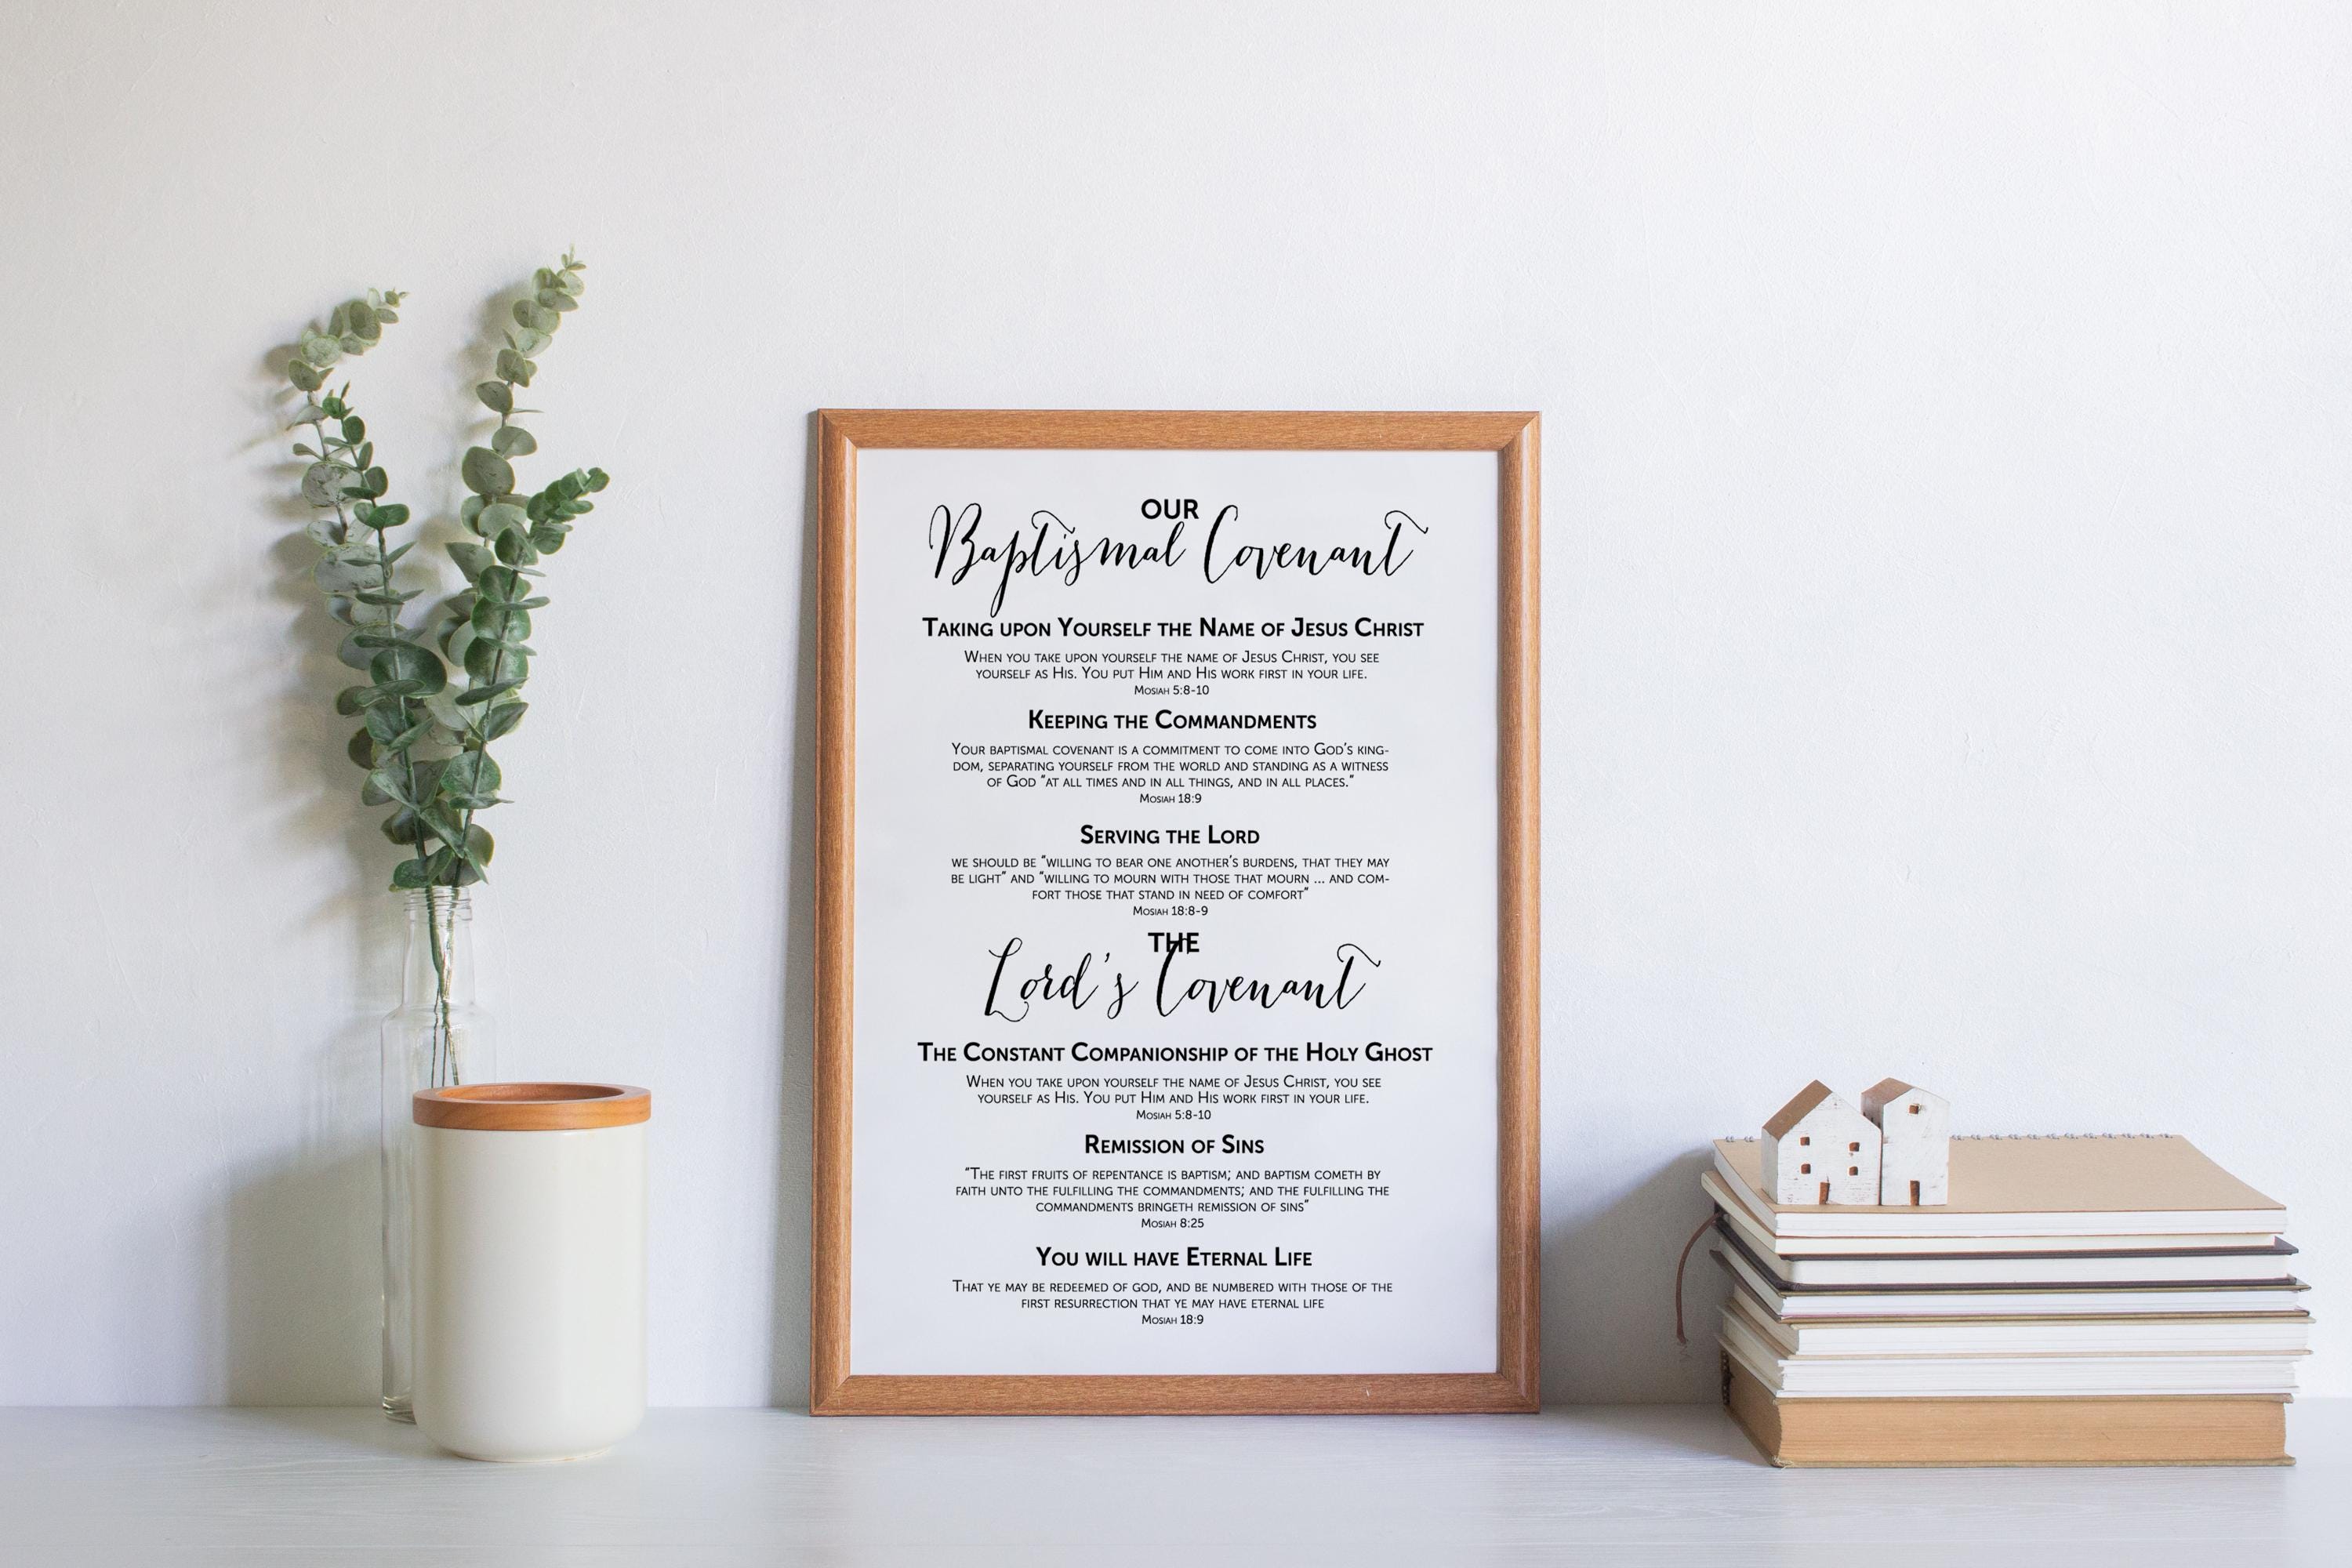 OUR
Baptismal Covenant
Taking upon Yourself the Name of Jesus Christ
When you take upon yourself the name of Jesus Christ, you see
yourself as His. You put Him and His work first in your life.
Mosiah 5:8-10
Keeping the Commandments
Your baptismal covenant is a commitment to come into God's king-
dom, separating yourself from the world and standing as a witness
of God "at all times and in all things, and in all places."
Mosiah 18:9
Serving the Lord
we should be "willing to bear one another's burdens, that they may
be light" and "willing to mourn with those that mourn ... and com-
fort those that stand in need of comfort"
Mosiah 18:8-9
THE
Lord's Covenant
The Constant Companionship of the Holy Ghost
When you take upon yourself the name of Jesus Christ, you see
yourself as His. You put Him and His work first in your life.
Mosiah 5:8-10
Remission of Sins
"The first fruits of repentance is baptism; and baptism cometh by
faith unto the fulfilling the commandments; and the fulfilling the
commandments bringeth remission of sins"
Mosiah 8:25
You will have Eternal Life
That ye may be redeemed of god, and be numbered with those of the
first resurrection that ye may have eternal life
Mosiah 18:9